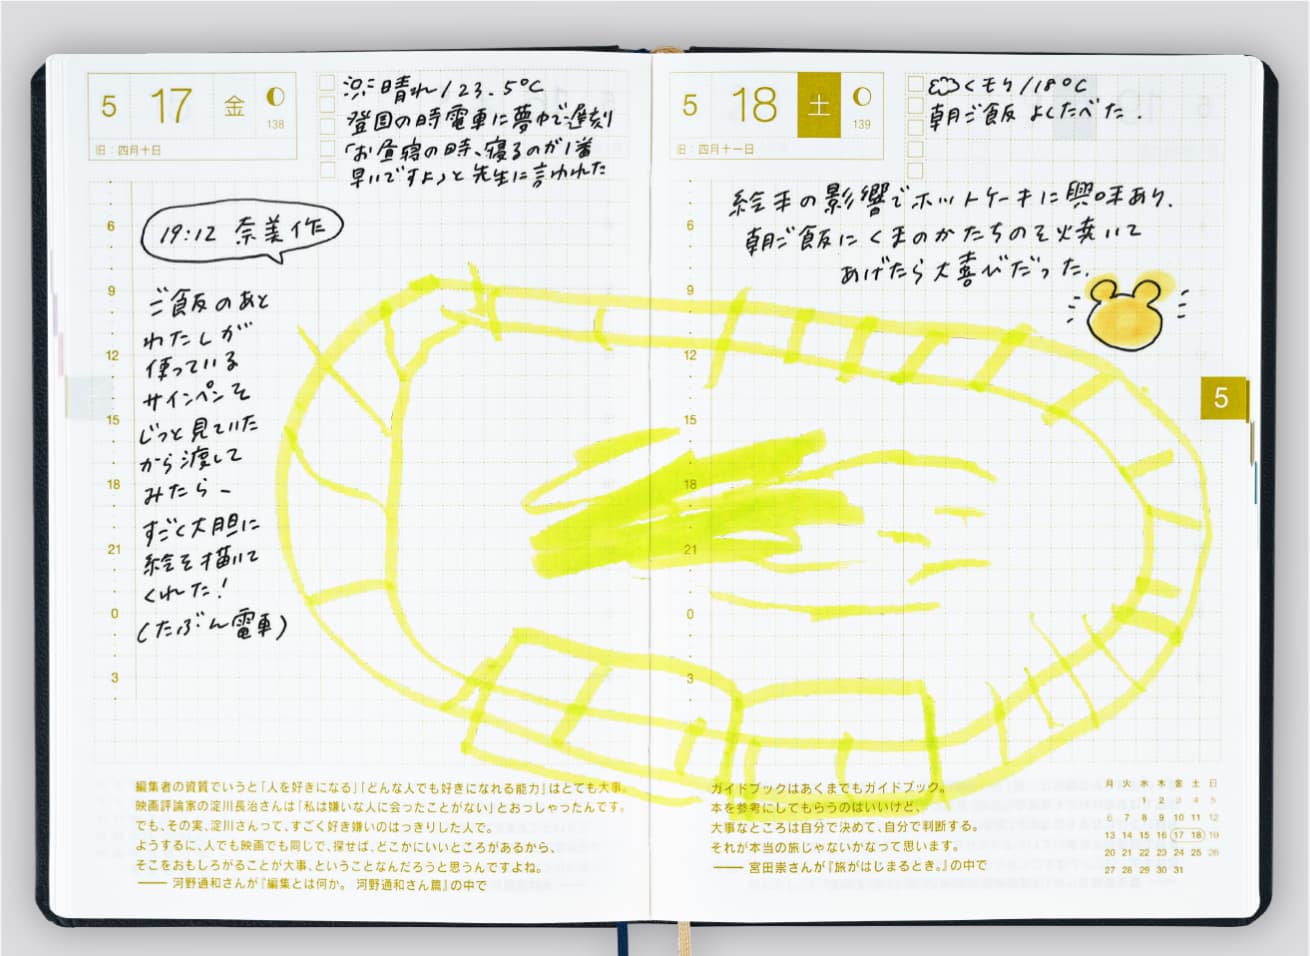 5 17 金 138
旧：四月十日
晴れ/23.5℃
登園の時電車に夢中で遅刻
「お昼寝の時、寝るのが1番
早いですよ」と先生に言われた
19:12 奈美作
ご飯のあと
わたしが
使っている
サインペンを
じっと見ていた
から渡して
みたら、
すごく大胆に
絵を描いて
くれた！
（たぶん電車）
6
9
12
15
18
21
0
3
編集者の資質でいうと「人を好きになる」「どんな人でも好きになれる能力」はとても大事。
映画評論家の淀川長治さんは「私は嫌いな人に会ったことがない」とおっしゃったんです。
でも、その実、淀川さんって、すごく好き嫌いのはっきりした人で。
ようするに、人でも映画でも同じで、探せば、どこかにいいところがあるから、
そこをおもしろがることが大事、ということなんだろうと思うんですよね。
―― 河野通和さんが『編集とは何か。 河野通和さん篇』の中で
5 18 土 139
旧：四月十一日
くもり/18℃
朝ご飯 よくたべた.
絵手の影響でホットケーキに興味あり.
朝ご飯にくまのかたちのを焼いて
あげたら大喜びだった.
6
9
12
15
18
21
0
3
5
ガイドブックはあくまでもガイドブック。
本を参考にしてもらうのはいいけど、
大事なところは自分で決めて、自分で判断する。
それが本当の旅じゃないかなって思います。
―― 宮田崇さんが『旅がはじまるとき。』の中で
月 火 水 木 金 土 日
1 2 3 4 5
6 7 8 9 10 11 12
13 14 15 16 17 18 19
20 21 22 23 24 25 26
27 28 29 30 31